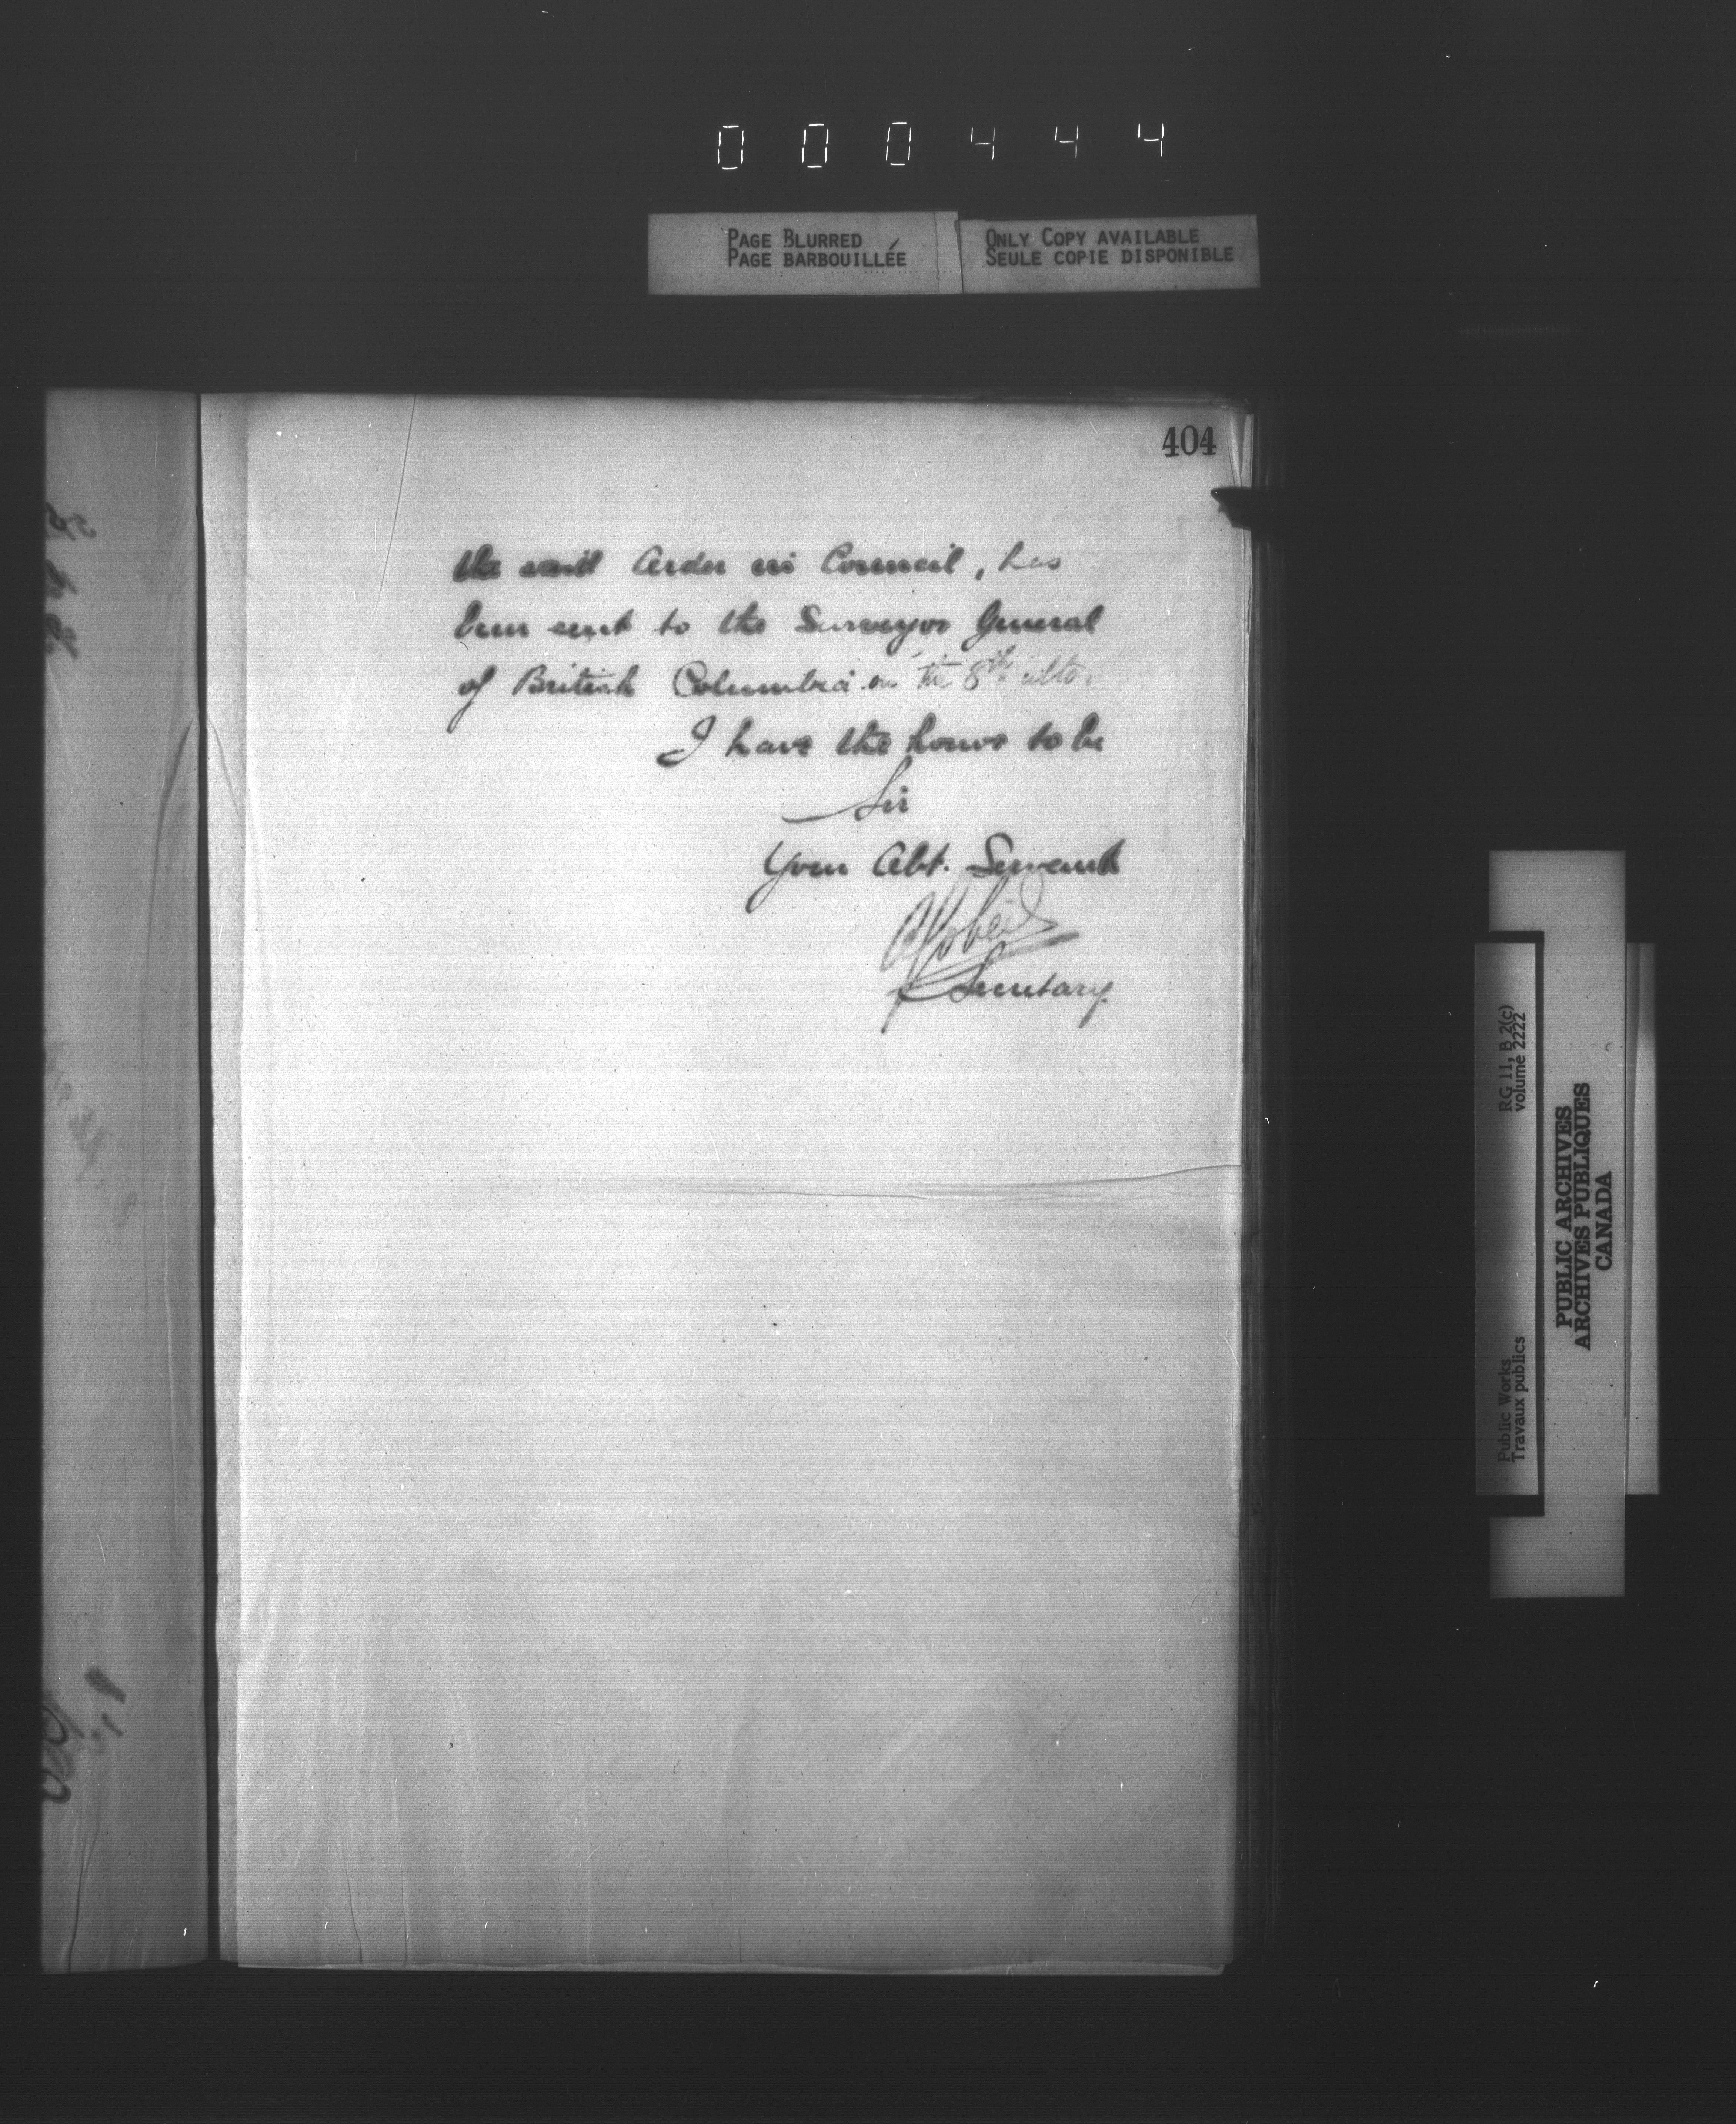 000444
PAGE BLURRED
PAGE BARBOUILLÉE
ONLY COPY AVAILABLE
SEULE COPIE DISPONIBLE
404
the said Order in Council, has
been sent to the Surveyor General
of British Columbia on the 8th ulto.
I have the honor to be
Sir
Your Obt. Servant
Secretary
RG 11, B 2(c)
volume 2222
Public Works
Travaux publics
PUBLIC ARCHIVES
ARCHIVES PUBLIQUES
CANADA